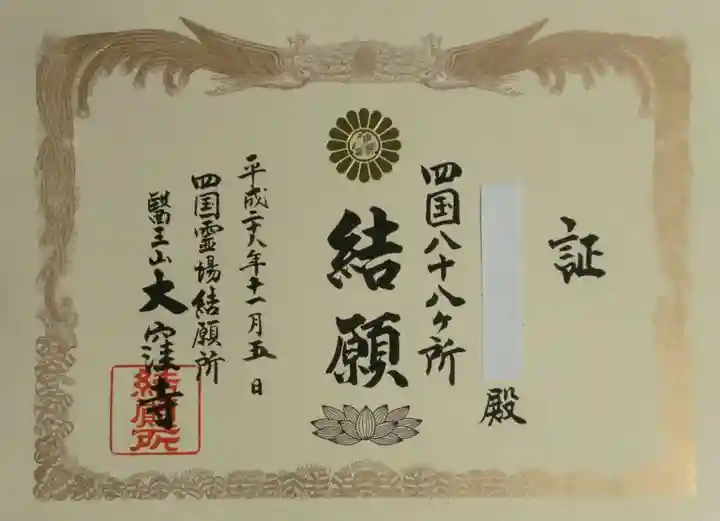 証
殿
四国八十八ヶ所
結願
平成二十六年十一月五日
四国霊場結願所
醫王山大窪寺
結願所